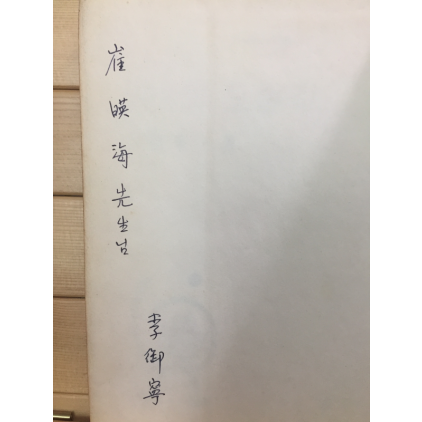 崔暎海先生님
李御寧